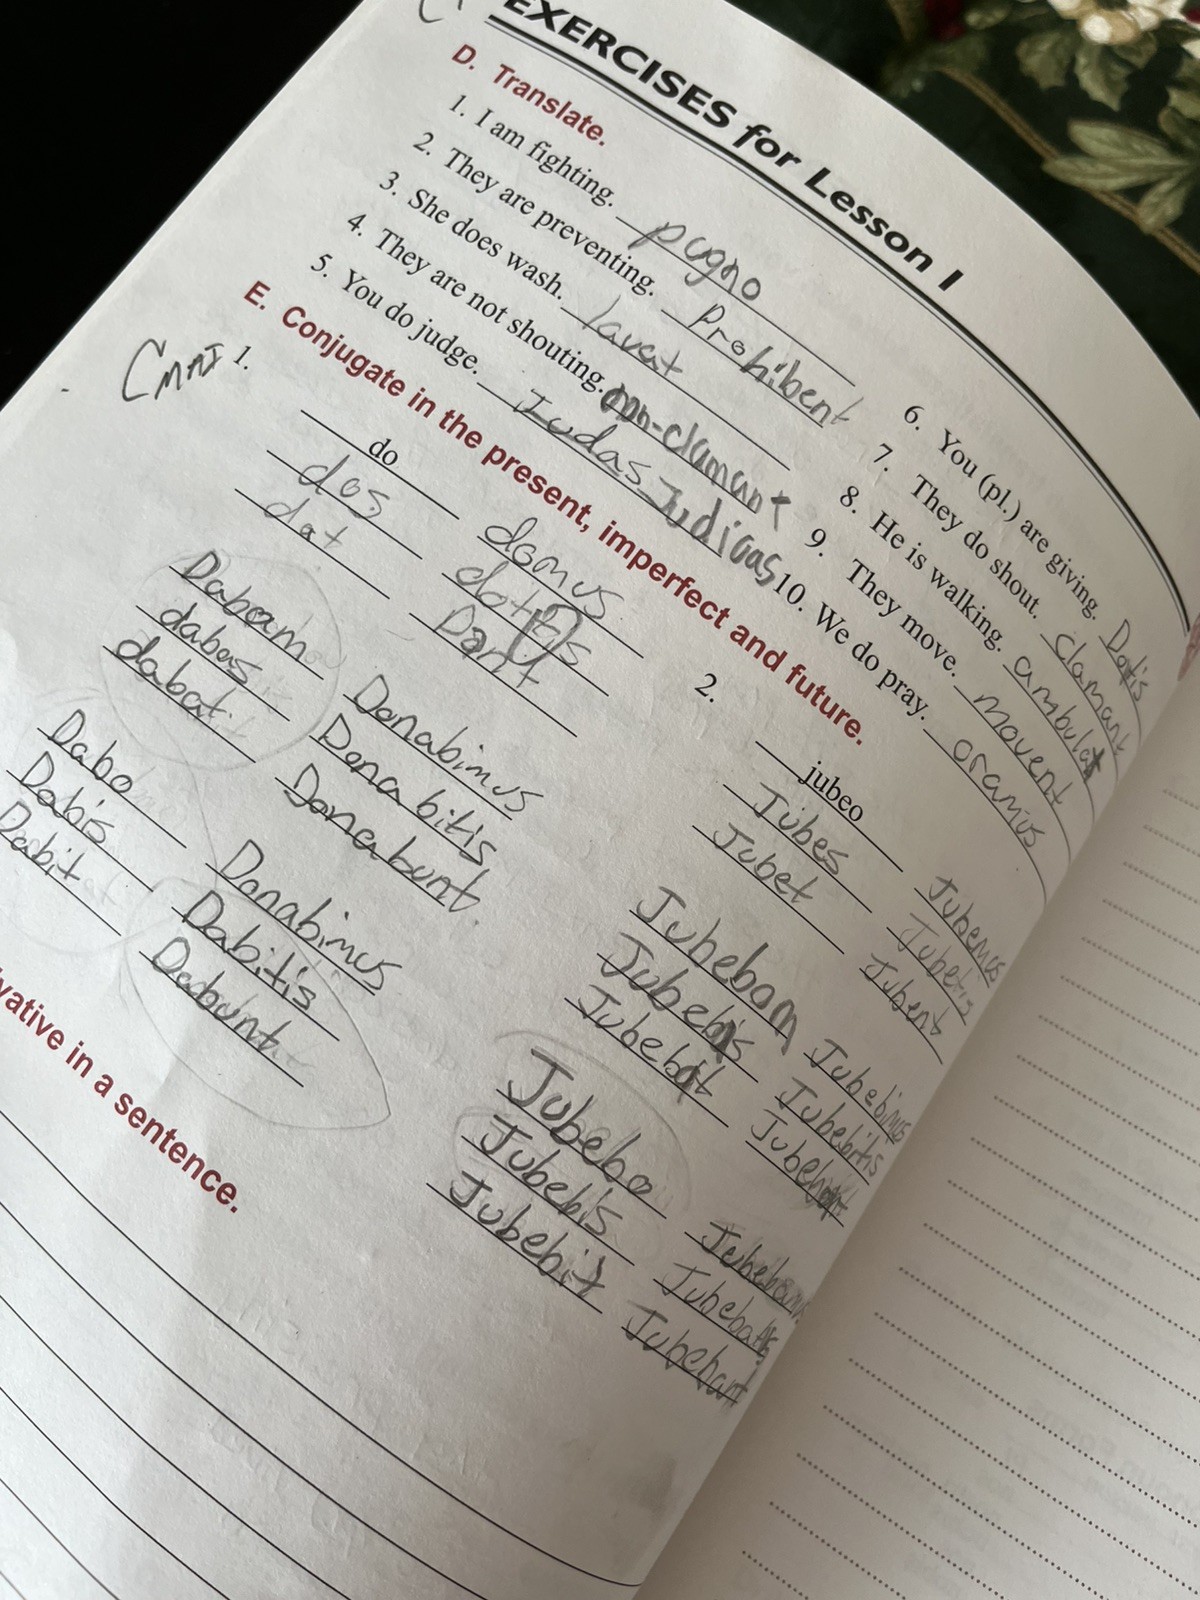 EXERCISES for Lesson I
D. Translate.
1. I am fighting. pugno
2. They are preventing. Prohibent
3. She does wash. lavat
4. They are not shouting. non-clamant
5. You do judge. Iudas Judicas
6. You (pl.) are giving. Datis
7. They do shout. clamant
8. He is walking. ambulat
9. They move. movent
10. We do pray. oramus
E. Conjugate in the present, imperfect and future.
1.
do damus
das datis
dat Dant
Dabam Donabimus
dabas Donabitis
dabat Donabunt.
Dabo Danabimus
Dabis Dabitis
Dabit Dabunt
2.
jubeo Jubemus
Jubes Jubetis
Jubet Jubent
Jubebam Jubebimus
Jubebas Jubebitis
Jubebat
Jubebo
Jubebis
Jubebit Jubebant
vative in a sentence.